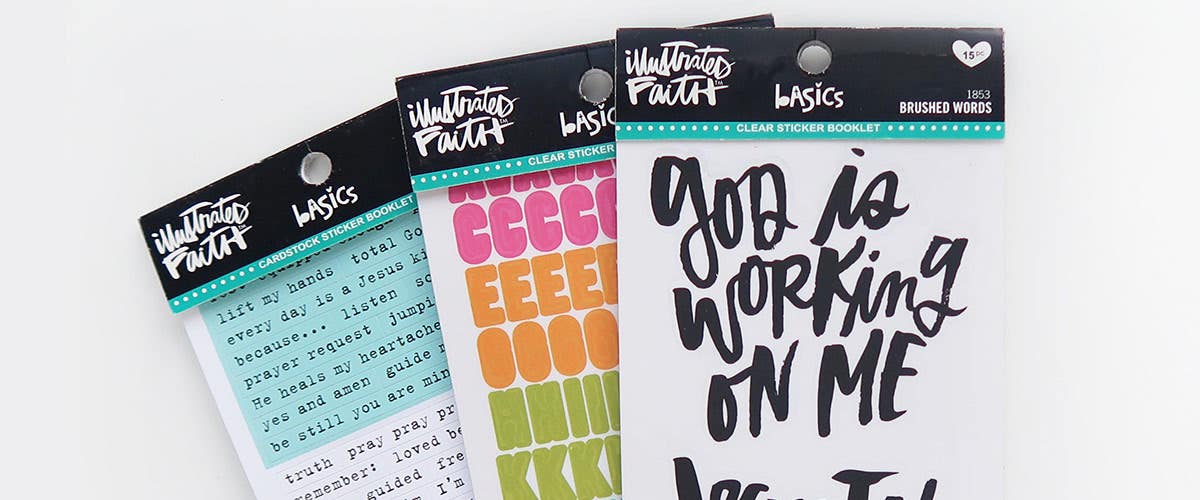 illustrated
faith™
basics
CARDSTOCK STICKER BOOKLET
lift my hands total
every day is a Jesus
because... listen
prayer request
He heals my
yes and amen guide
be still you are
truth pray pray
remember: loved
guided
I'm
illustrated
faith™
basics
CLEAR STICKER
CCCCC
EEEEE
OOOO
KKKK
illustrated
faith™
basics
15 PC
1853
BRUSHED WORDS
CLEAR STICKER BOOKLET
God is
working
on me